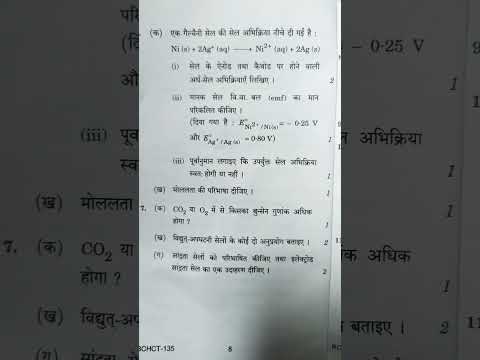 (क) एक गैल्वैनी सेल की सेल अभिक्रिया नीचे दी गई है :
Ni (s) + 2Ag⁺ (aq) ⟶ Ni²⁺ (aq) + 2Ag (s)
(i) सेल के ऐनोड तथा कैथोड पर होने वाली
अर्ध-सेल अभिक्रियाएँ लिखिए । 1
(ii) मानक सेल वि.वा. बल (emf) का मान
परिकलित कीजिए । 1
(दिया गया है : E°Ni²⁺/Ni(s) = – 0·25 V
और E°Ag⁺/Ag (s) = 0·80 V)
(iii) पूर्वानुमान लगाइए कि उपर्युक्त सेल अभिक्रिया
स्वतः होगी या नहीं । 1
(ख) मोललता की परिभाषा दीजिए । 1
7. (क) CO₂ या O₂ में से किसका बुन्सेन गुणांक अधिक
होगा ? 1
(ख) विद्युत्-अपघटनी सेलों के कोई दो अनुप्रयोग बताइए । 2
(ग) सांद्रता सेलों को परिभाषित कीजिए तथा इलेक्ट्रोड
सांद्रता सेल का एक उदाहरण दीजिए । 2
BCHCT-135 8